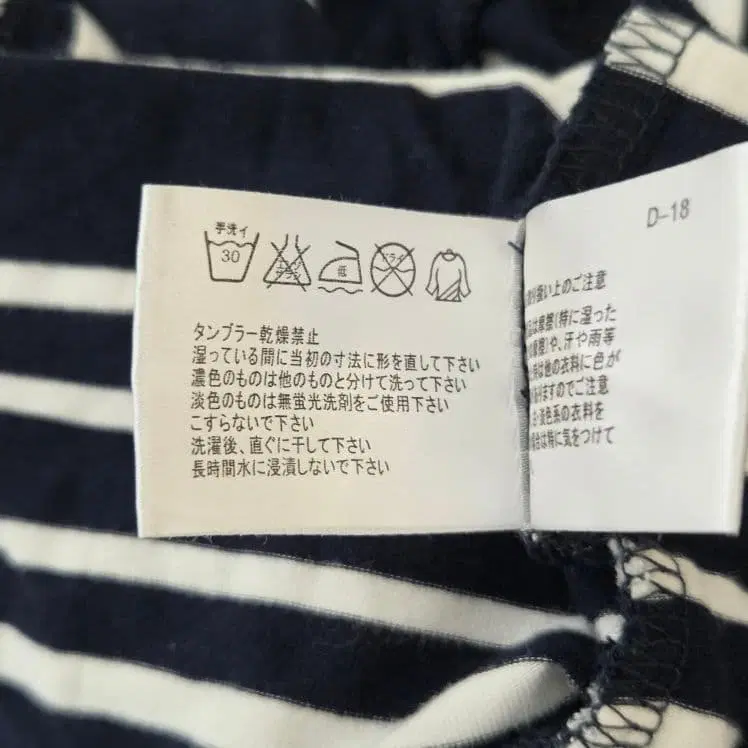 手洗イ
30
エンソ
サラシ
低
ドライ
タンブラー乾燥禁止
湿っている間に当初の寸法に形を直して下さい
濃色のものは他のものと分けて洗って下さい
淡色のものは無蛍光洗剤をご使用下さい
こすらないで下さい
洗濯後、直ぐに干して下さい
長時間水に浸漬しないで下さい
D-18
り扱い上のご注意
は摩擦(特に湿った
摩擦)や、汗や雨等
時は他の衣料に色が
ますのでご注意
淡色系の衣料を
場合は特に気をつけて